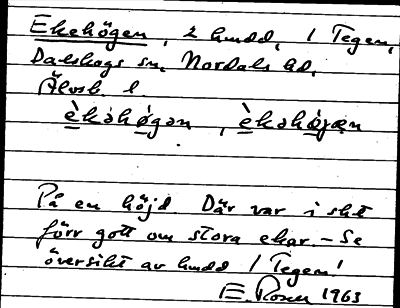 Ekehögen, 2 hmdd, 1 Tegen,
Dalskogs sn, Nordals hd,
Älvsb. l.
èkəhø̀gən, èkəhø̀gæn
På en höjd. Där var i sht
förr gott om stora ekar. – Se
översikt av hmdd 1 Tegen!
E. Rosen 1963